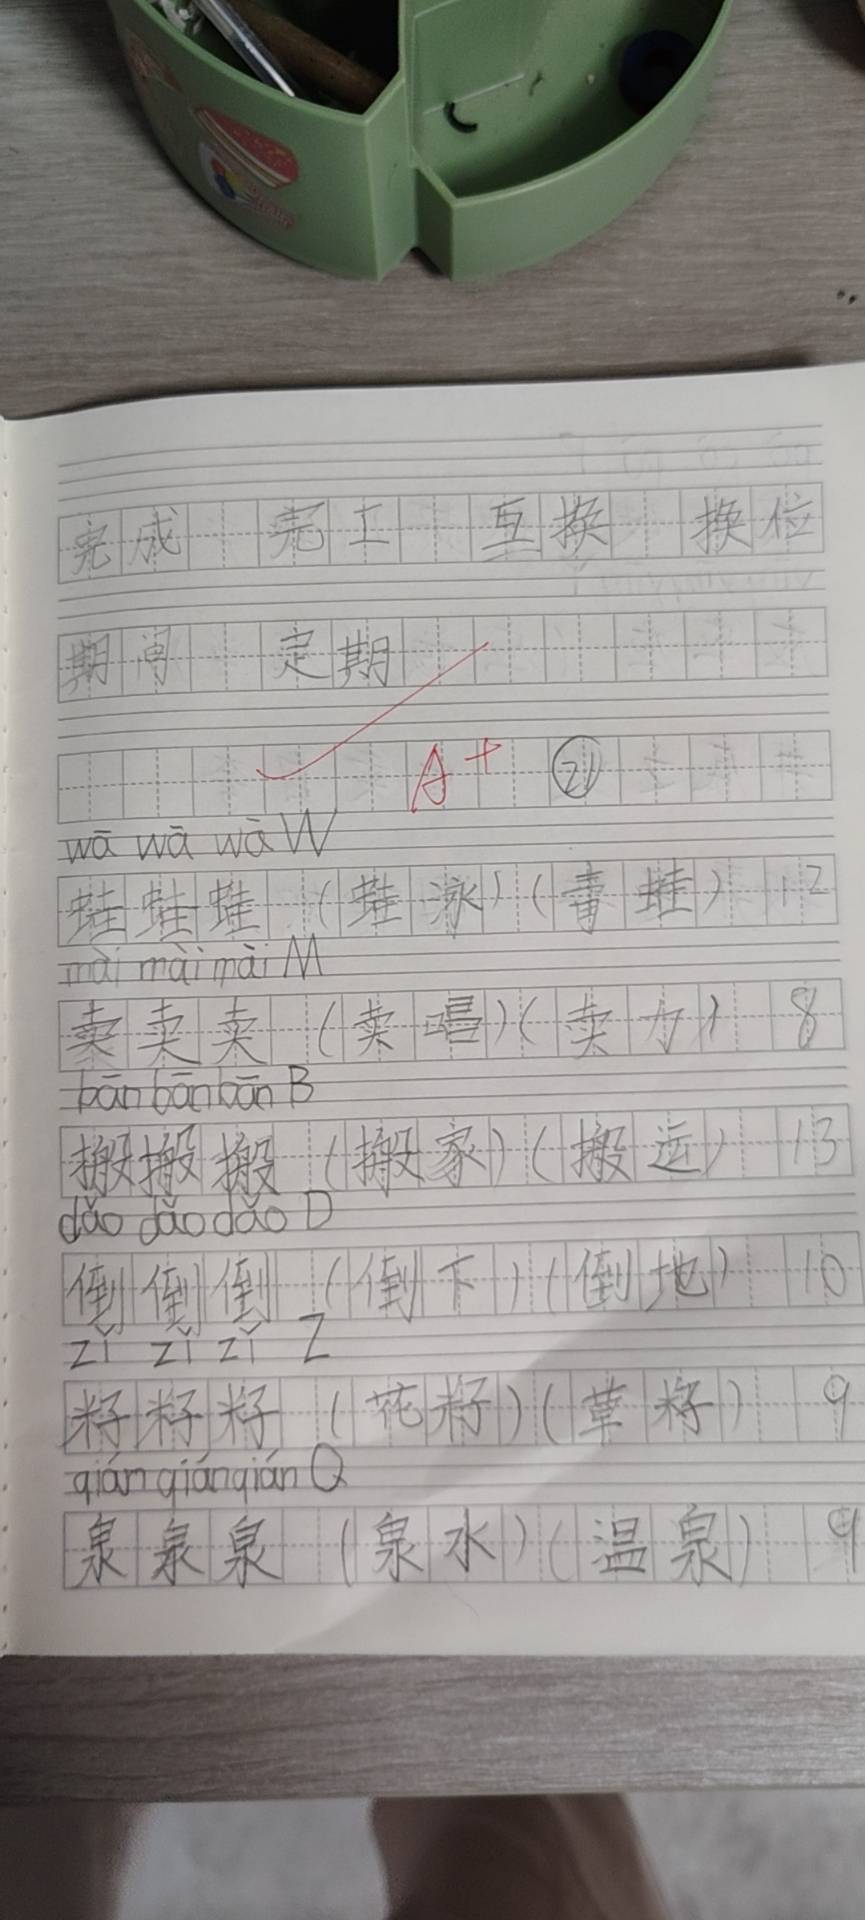 完成 完工 互换 换位
期间 定期
A+ 21
wā wā wā W
蛙蛙蛙 (蛙泳) (青蛙) 12
mài mài mài M
卖卖卖 (卖唱) (卖力) 8
bān bān bān B
搬搬搬 (搬家) (搬运) 13
dǎo dǎo dǎo D
倒倒倒 (倒下) (倒地) 10
zǐ zǐ zǐ Z
籽籽籽 (花籽) (草籽) 9
qián qián qián Q
泉泉泉 (泉水) (温泉) 9